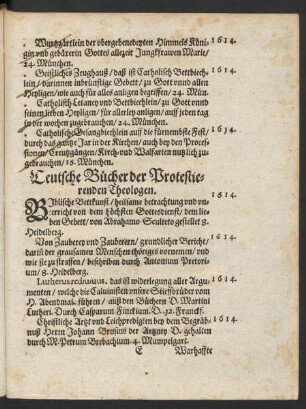 . Wurtzgärtlein der übergebenedeyten Himmels Köni- 1614.
gin und gebärerin Gottes allezeit Jungkfrawen Mariæ/
24. München.
. Geistliches Zeughauß/ daß ist Catholisch Bettbiech- 1614.
lein/ darinnen inbrünstige Gebett/ zu Gott unnd allen
Heyligen/ wie auch für alles anligen begriffen/ 24. Mün.
. Catholisch Letaney und Bettbiechlein/ zu Gott unnd
seinen lieben Heyligen/ für allerley anligen/ auff jeden tag
in der wochen zugebrauchen/ 24. München.
. Catholische Gesangbiechlein auff die fürnembste Fest/ 1614.
durch das gantze Jar in der Kirchen/ auch bey den Proces-
sionen/ Creutzgängen/ Kirch- und Walfarten nutzlich zu-
gebrauchen/ 16. München.
Teutsche Bücher der Protestie-
renden Theologen.
BIblische Bettkunst/ heilsame betrachtung und un- 1614.
terricht von dem höchsten Gottesdienst/ dem lie-
ben Gebett/ von Abrahamo Sculteto gestellet 8.
Heidelberg.
Von Zauberey und Zauberern/ grundlicher Bericht/ 1614.
darin der grausamen Menschen thöriges vornemen/ und
wie sie zu straffen/ beschriben durch Antonium Pretori-
um/ 8. Heidelberg.
Lutherus redivivus, das ist widerlegung aller Argu- 1614.
menten/ welche die Calvinisten unsere Stiefbrüder vom
H. Abendmal führen/ auß den Büchern D. Martini
Lutheri. Durch Casparum Finckium. D. 12. Franckf.
Christliche Artzt und Leichpredigten bey dem Begräb- 1614.
nuß Herrn Johann Brusius der Artzney D. gehalten
durch M. Petrum Brebachium 4. Mümpelgart.
E Warhaffte